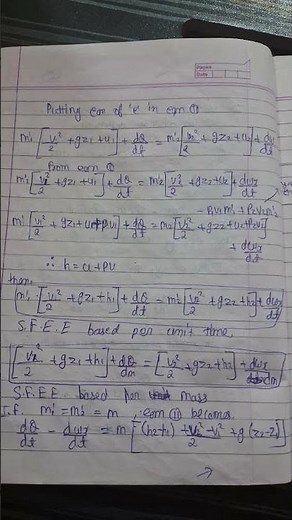 Pages
Date
Putting eqn of 'e' in eqn ①
ṁ₁ [V₁²/2 + gz₁ + u₁] + dQ/dt = ṁ₂ [V₂²/2 + gz₂ + u₂] + dw/dt
From eqn ①
ṁ₁ [V₁²/2 + gz₁ + u₁] + dQ/dt = ṁ₂ [V₂²/2 + gz₂ + u₂] + dwx/dt
- P₁V₁ṁ₁ + P₂V₂ṁ₂
ṁ₁ [V₁²/2 + gz₁ + u₁ + P₁V₁] + dQ/dt = ṁ₂ [V₂²/2 + gz₂ + u₂ + P₂V₂]
+ dwx/dt
∴ h = u + PV
then,
ṁ₁ [V₁²/2 + gz₁ + h₁] + dQ/dt = ṁ₂ [V₂²/2 + gz₂ + h₂] + dwx/dt
S.F.E.E based per unit time
[V₁²/2 + gz₁ + h₁] + dQ/dm = [V₂²/2 + gz₂ + h₂] + dwx/dm
S.F.E.E. based per mass
I.F. ṁ₁ = ṁ₂ = m, eqn (ii) becomes
dQ/dt - dwx/dt = m [(h₂-h₁) + V₂²-V₁²/2 + g(z₂-z₁)]